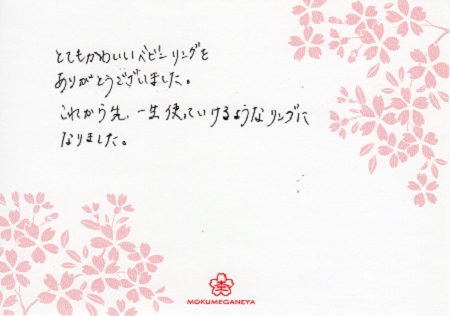 とてもかわいいベビーリングを
ありがとうございました。
これから先、一生使っていけるようなリングに
なりました。
MOKUMEGANEYA